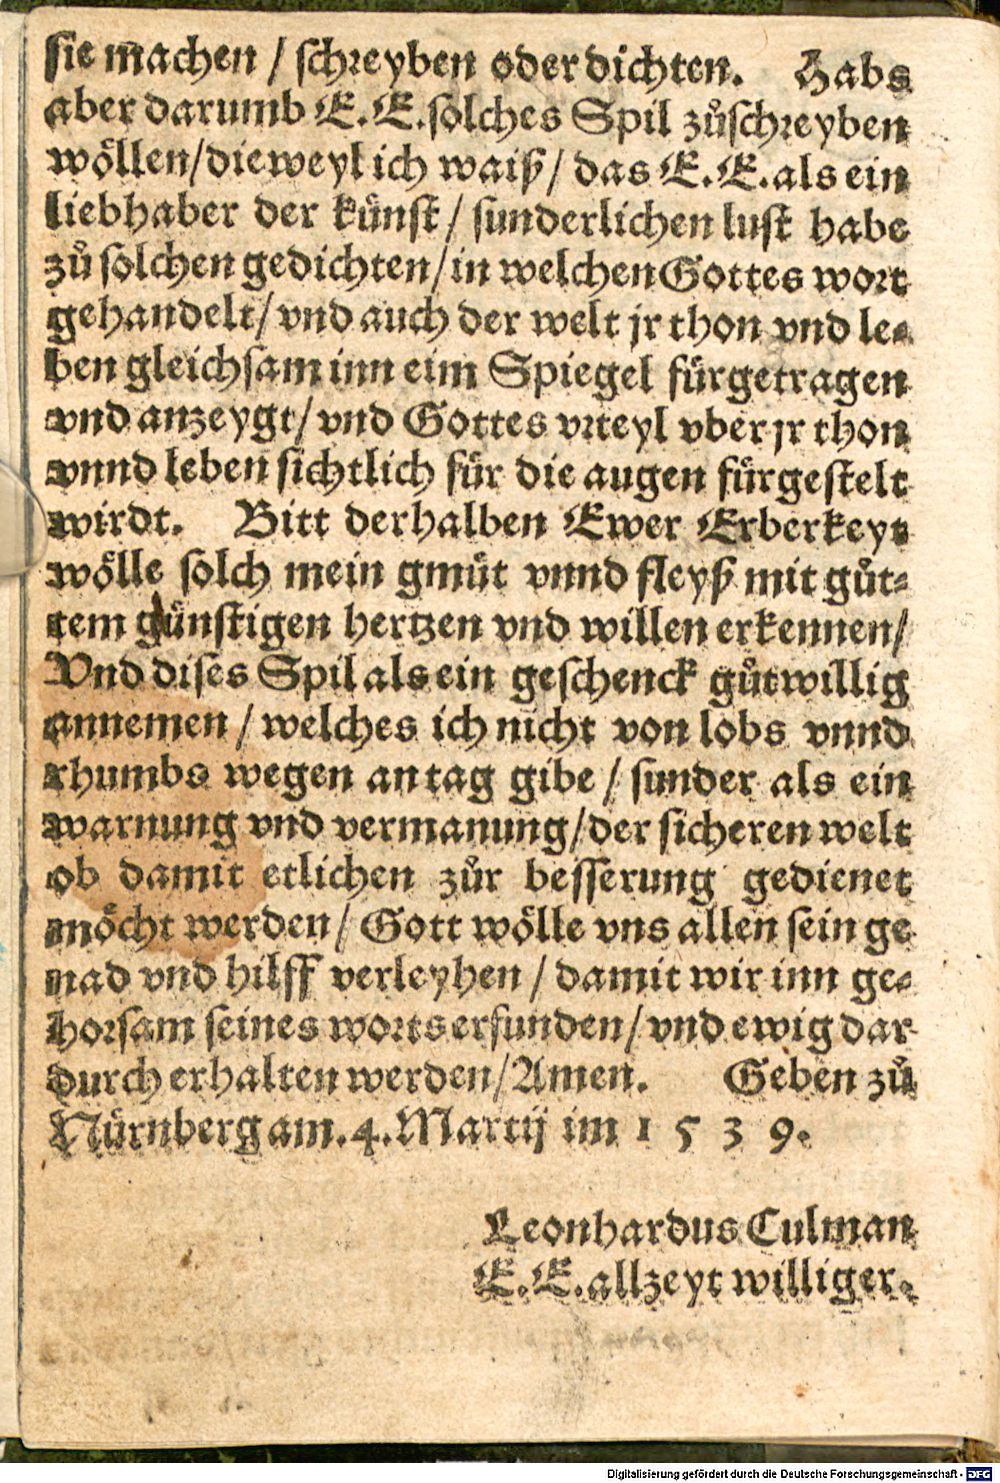 sie machen / schreyben oder dichten. Habs
aber darumb E. E. solches Spil zůschreyben
wöllen/dieweyl ich waiß/ das E. E. als ein
liebhaber der künst/ sunderlichen lust habe
zů solchen gedichten/in welchen Gottes wort
gehandelt/ vnd auch der welt jr thon vnd le-
ben gleichsam inn eim Spiegel fürgetragen
vnd anzeygt/ vnd Gottes vrteyl vber jr thon
vnnd leben sichtlich für die augen fürgestelt
wirdt. Bitt derhalben Ewer Erberkeyt
wölle solch mein gmüt vnnd fleyß mit gůt-
tem günstigen hertzen vnd willen erkennen/
Vnd dises Spil als ein geschenck gůtwillig
annemen / welches ich nicht von lobs vnnd
rhumbs wegen an tag gibe / sunder als ein
warnung vnd vermanung/der sicheren welt
ob damit etlichen zůr besserung gedienet
möcht werden/ Gott wölle vns allen sein ge
nad vnd hilff verleyhen / damit wir inn ge-
horsam seines worts erfunden/ vnd ewig dar
durch erhalten werden/Amen. Geben zů
Nürnberg am.4.Martij im 1539.
Leonhardus Culman
E. E. allzeyt williger.
Digitalisierung gefördert durch die Deutsche Forschungsgemeinschaft - DFG